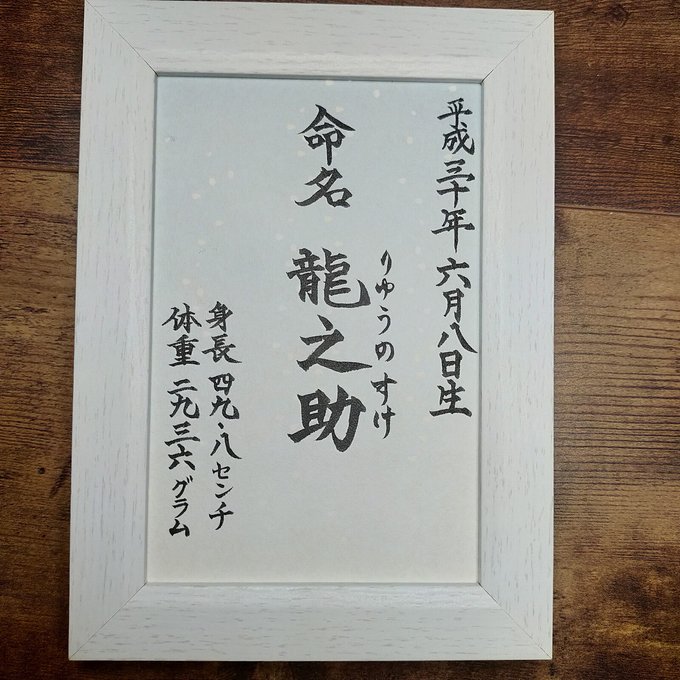 平成三十年六月八日生
命名 龍之助
りゅうのすけ
身長 四九・八センチ
体重 二九三六グラム